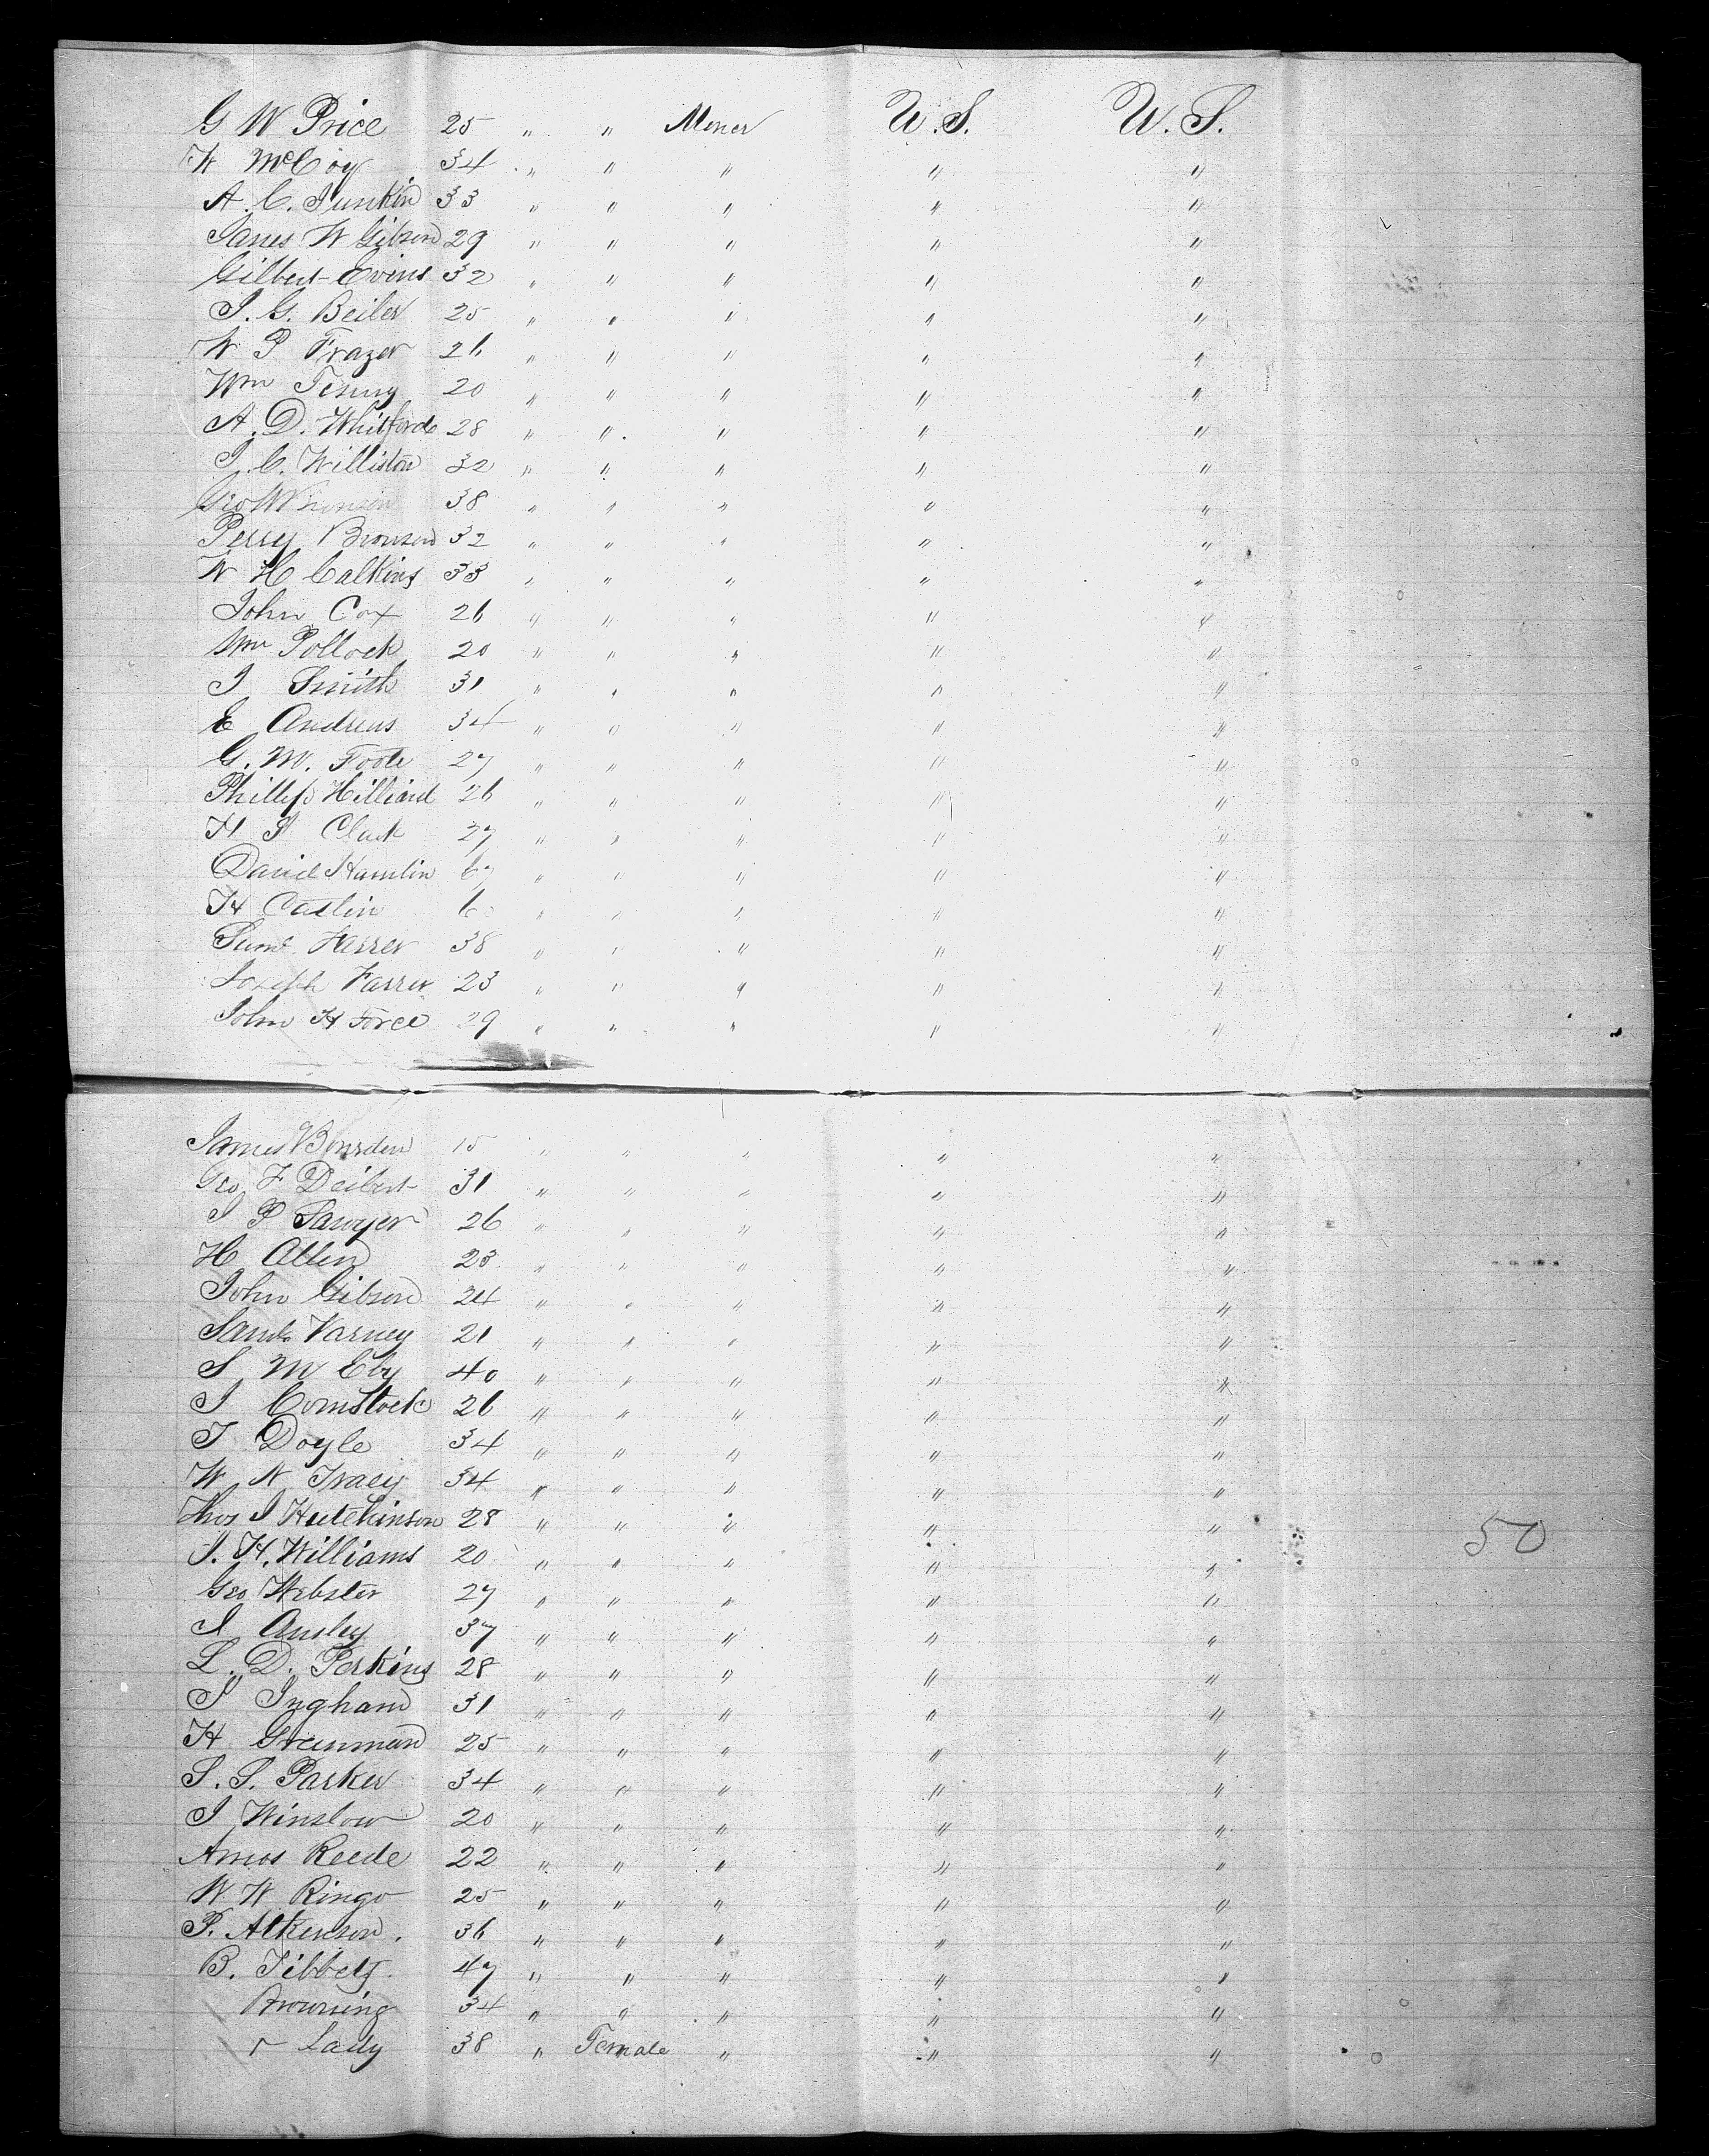 G W Price 25 " " Moner U.S. U.S.
W McCoy 34 " " " " "
A. C. Junkin 33 " " " " "
James W Gibson 29 " " " " "
Gilbert Evins 32 " " " " "
J. G. Beiler 25 " " " " "
W P Frazer 26 " " " " "
Wm Tenny 20 " " " " "
A. D. Whitford 28 " " " " "
J. C. Williston 32 " " " " "
Geo W 38 " " " " "
Perry Bronson 32 " " " " "
W H Calkins 33 " " " " "
John Cox 26 " " " " "
Wm Pollock 20 " " " " "
J Smith 31 " " " " "
E Andrews 34 " " " " "
G. M. Foote 27 " " " " "
Phillip Hilliard 26 " " " " "
H P Clark 27 " " " " "
David Hamlin 67 " " " " "
H Catlin " " " " "
Saml Farrer 38 " " " " "
Joseph Farrer 23 " " " " "
John H Force 29 " " " " "
James 15 " " " " "
Geo F Deibert 31 " " " " "
J P Sawyer 26 " " " " "
H Allen 23 " " " " "
John Gibson 24 " " " " "
Saml Varney 21 " " " " "
S M Eby 40 " " " " "
J Comstock 26 " " " " "
T Doyle 34 " " " " "
W N Tracy 34 " " " " "
Thos J Hutchinson 28 " " " " " 50
J. H. Williams 20 " " " " "
Geo Webster 27 " " " " "
J Ansley 37 " " " " "
L. D. Perkins 28 " " " " "
J Ingham 31 " " " " "
H Greenman 25 " " " " "
S. S. Parker 34 " " " " "
J Winslow 20 " " " " "
Amos Reede 22 " " " " "
W W Ringo 25 " " " " "
P. Atkenson. 36 " " " " "
B. Tibbets. 47 " " " " "
Browning 34 " " " " "
" Lady 38 " Female " " "